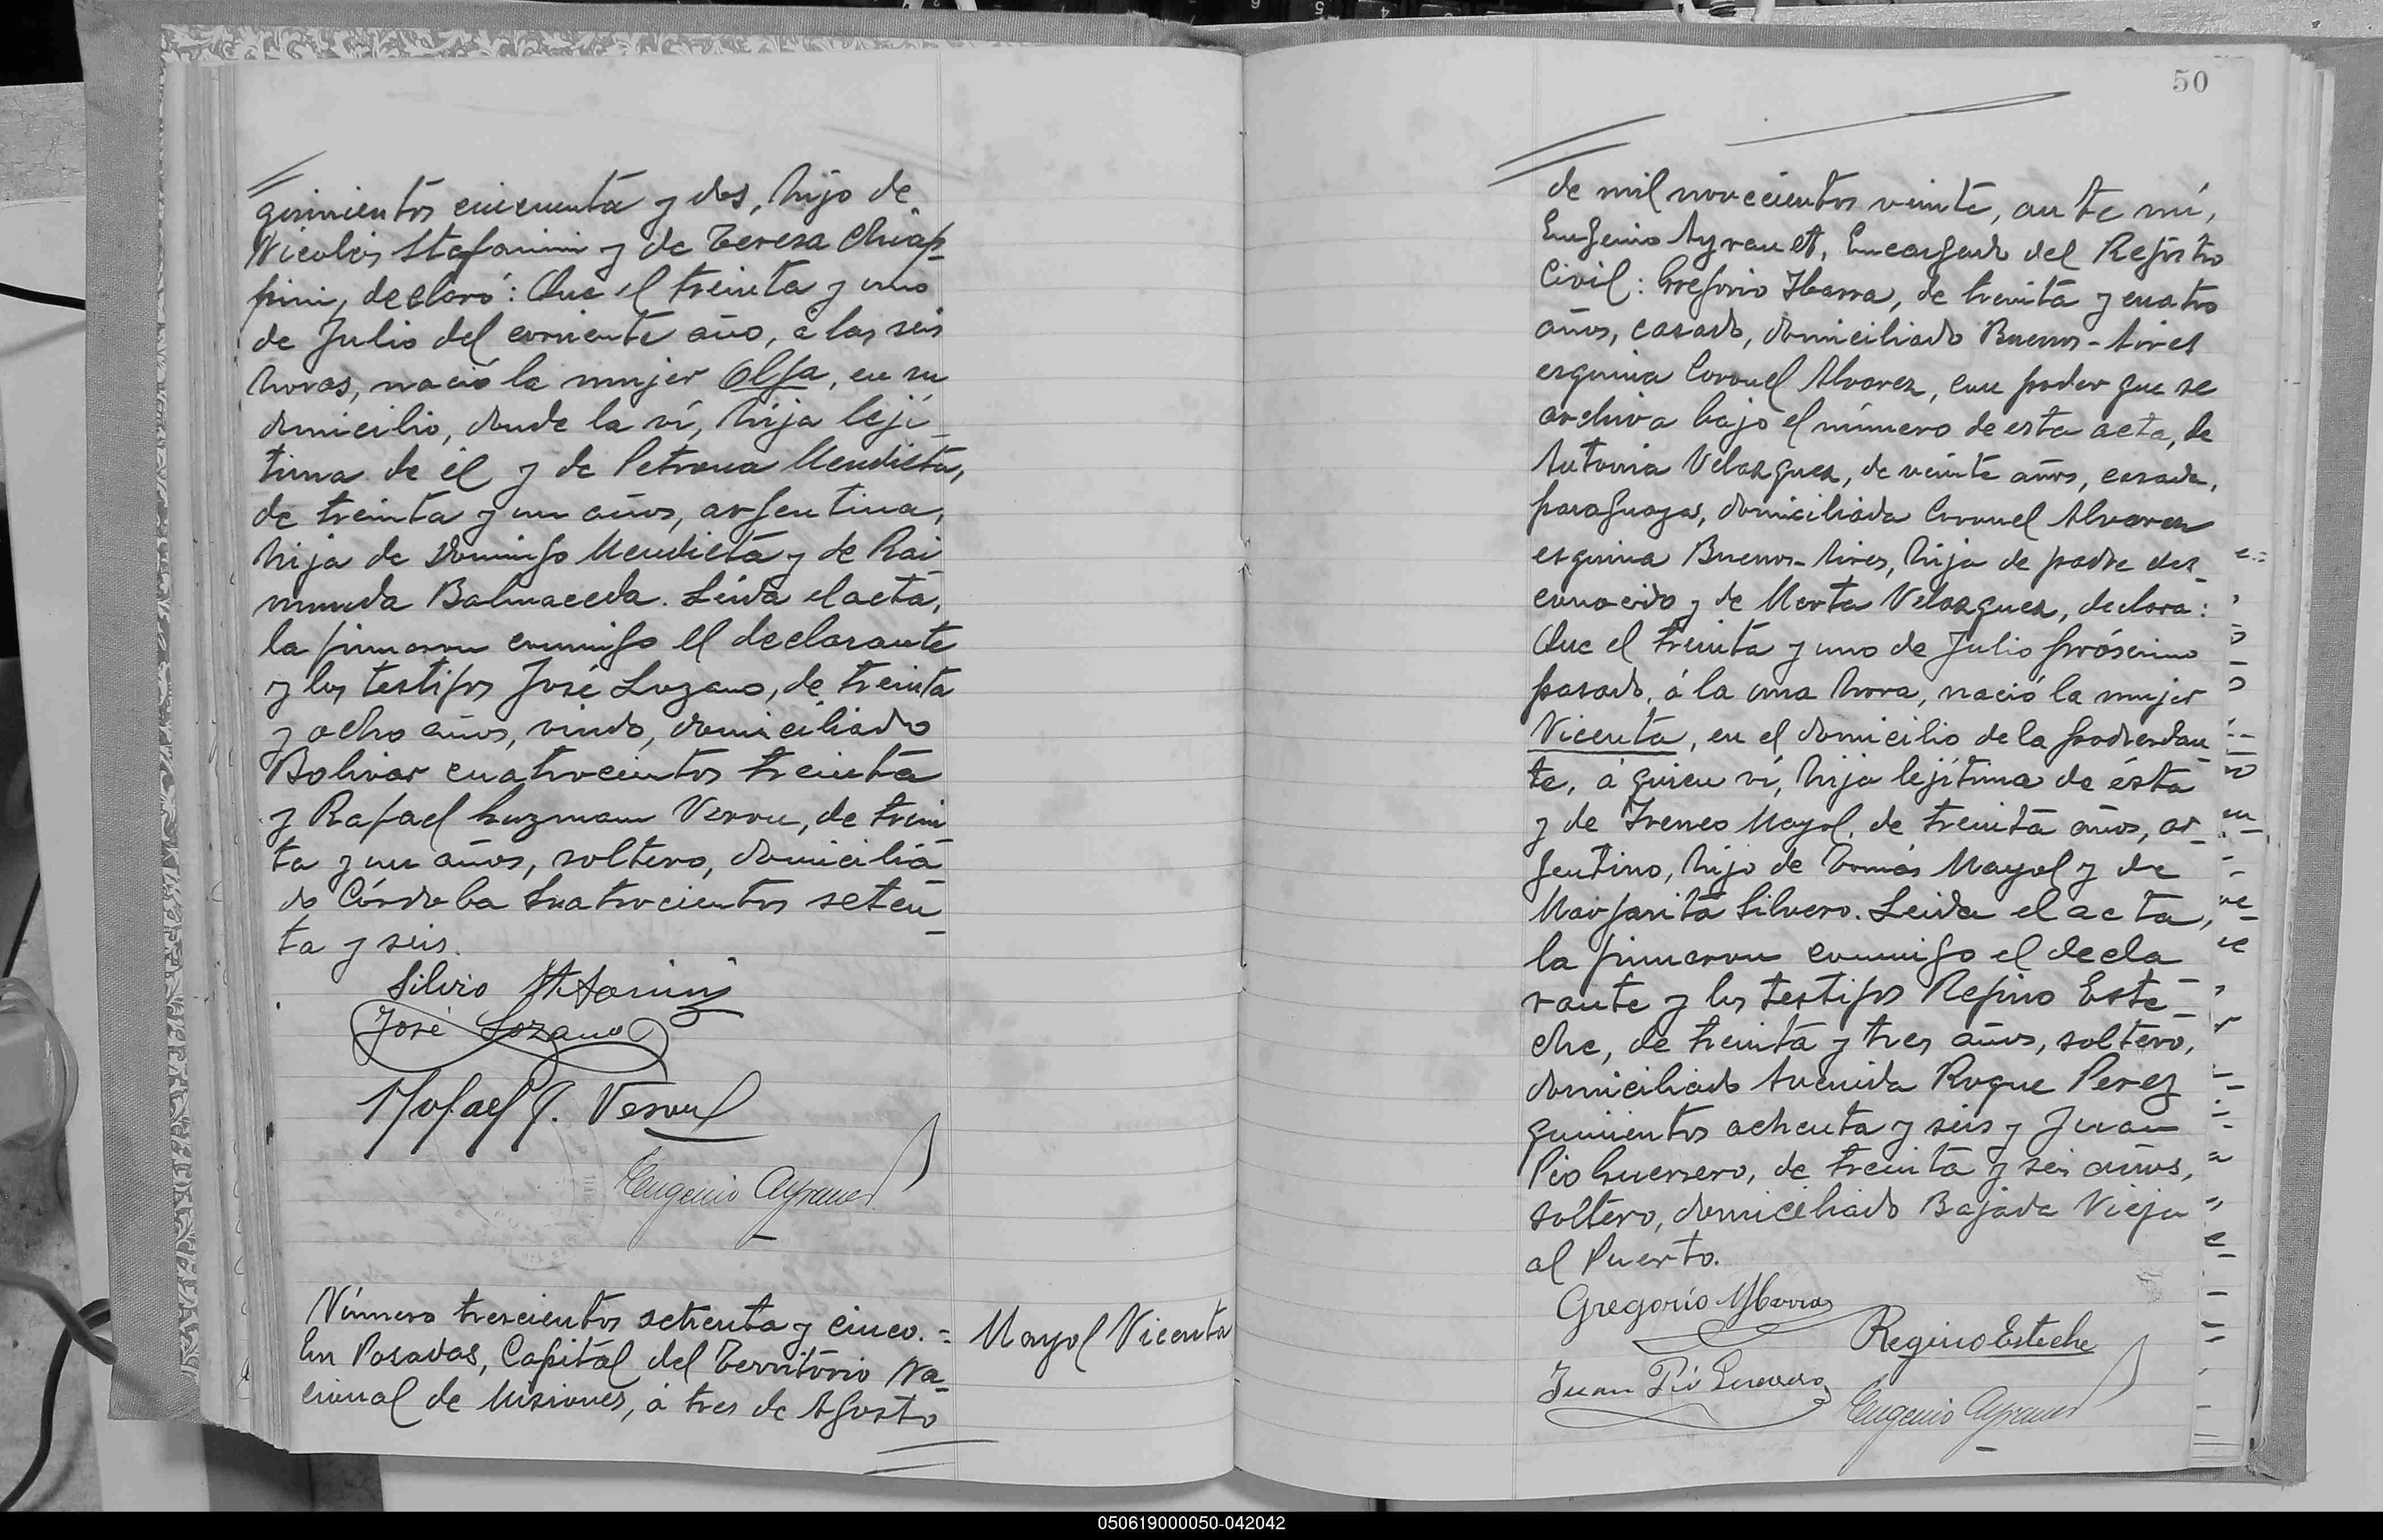 quinientos cincuenta y dos, hijo de
Nicolás Stefanini y de Teresa Chiap-
pini, declaró: Que el treinta y uno
de Julio del corriente año, á las seis
horas, nació la mujer Olga, en su
domicilio, donde la ví, hija leji-
tima de él y de Petrona Mendieta,
de treinta y un años, argentina,
hija de Domingo Mendieta y de Rai-
munda Balmaceda. Leida el acta,
la firmaron conmigo el declarante
y los testigos José Lozano, de treinta
y ocho años, viudo, domiciliado
Bolivar cuatrocientos treinta
y Rafael Guzman Veron, de trein
ta y un años, soltero, domicilia
do Córdoba cuatrocientos seten-
ta y seis.
Silvio Stefanini
José Lozano
Rafael G. Veron
Eugenio Ayrault
Número trescientos ochenta y cinco. =
En Posadas, Capital del Territorio Na-
cional de Misiones, á tres de Agosto
Mayol Vicenta
50
de mil novecientos veinte, ante mí,
Eugenio Ayrault, Encargado del Registro
Civil: Gregorio Ibarra, de treinta y cuatro
años, casado, domiciliado Buenos-Aires
esquina Coronel Alvarez, con poder que se
archiva bajo el número de esta acta, de
Antonia Velazquez, de veinte años, casada,
paraguaya, domiciliada Coronel Alvarez
esquina Buenos-Aires, hija de padre des-
conocido y de Marta Velazquez, declara:
Que el treinta y uno de Julio próximo
pasado, á la una hora, nació la mujer
Vicenta, en el domicilio de la poderdan-
te, á quien ví, hija lejítima de ésta
y de Ireneo Mayol, de treinta años, ar-
gentino, hijo de Tomás Mayol y de
Margarita Silvero. Leida el acta,
la firmaron conmigo el decla-
rante y los testigos Regino Este-
che, de treinta y tres años, soltero,
domiciliado Avenida Roque Perez
quinientos ochenta y seis y Juan
Pio Guerrero, de treinta y seis años,
soltero, domiciliado Bajada Vieja
al Puerto.
Gregorio Ybarra
Regino Esteche
Juan Pió Guerrero
Eugenio Ayrault
050619000050-042042